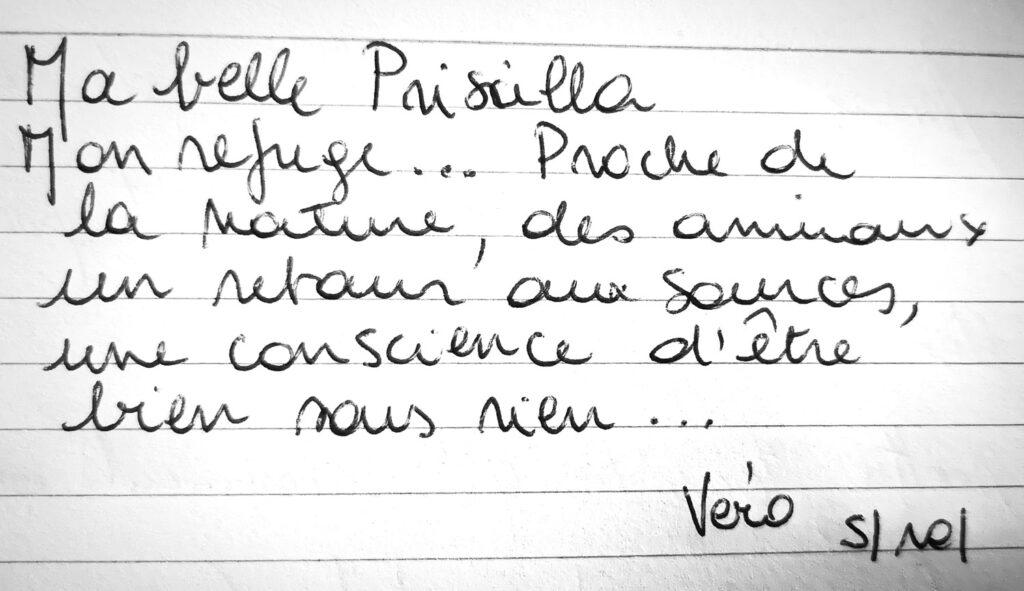 Ma belle Priscilla
Mon refuge... Proche de
la nature, des animaux
un retour aux sources,
une conscience d'être
bien sous rien...
Véro